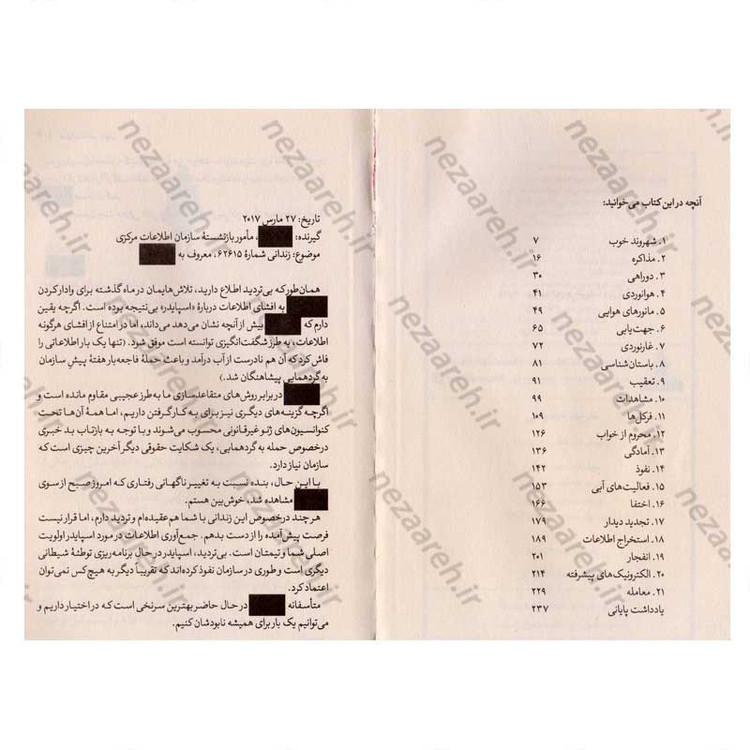 آنچه در این کتاب می‌خوانید:
۱. شهروند خوب ۷
۲. مذاکره ۱۶
۳. دوراهی ۳۰
۴. هوانوردی ۴۱
۵. مانورهای هوایی ۴۹
۶. جهت‌یابی ۶۵
۷. غارنوردی ۷۲
۸. باستان‌شناسی ۸۱
۹. تعقیب ۹۱
۱۰. مشاهدات ۹۹
۱۱. فرکل‌ها ۱۰۹
۱۲. محروم از خواب ۱۲۶
۱۳. آمادگی ۱۳۶
۱۴. نفوذ ۱۴۲
۱۵. فعالیت‌های آبی ۱۵۳
۱۶. اختفا ۱۶۶
۱۷. تجدید دیدار ۱۷۹
۱۸. استخراج اطلاعات ۱۸۹
۱۹. انفجار ۲۰۱
۲۰. الکترونیک‌های پیشرفته ۲۱۴
۲۱. معامله ۲۲۹
یادداشت پایانی ۲۳۷
تاریخ: ۲۷ مارس ۲۰۱۷
گیرنده: ، مأمور بازنشستهٔ سازمان اطلاعات مرکزی
موضوع: زندانی شمارهٔ ۶۲۶۱۵، معروف به
همان‌طور که بی‌تردید اطلاع دارید، تلاش‌هایمان در ماه گذشته برای وادار کردن
به افشای اطلاعات دربارهٔ «اسپایدر» بی‌نتیجه بوده است. اگرچه یقین
دارم که بیش از آنچه نشان می‌دهد می‌داند، اما در امتناع از افشای هرگونه
اطلاعات، به طرز شگفت‌انگیزی توانسته است موفق شود. (تنها یک بار اطلاعاتی را
فاش کرد که آن هم نادرست از آب درآمد و باعث حملهٔ فاجعه‌بار هفتهٔ پیش سازمان
به گردهمایی پیشاهنگان شد.)
در برابر روش‌های متقاعدسازی ما به طرز عجیبی مقاوم مانده است و
اگرچه گزینه‌های دیگری نیز برای به کار گرفتن داریم، اما همهٔ آن‌ها تحت
کنوانسیون‌های ژنو غیرقانونی محسوب می‌شوند و با توجه به بازتاب بد خبری
درخصوص حمله به گردهمایی، یک شکایت حقوقی دیگر آخرین چیزی است که
سازمان نیاز دارد.
با این حال، بنده نسبت به تغییر ناگهانی رفتاری که امروز صبح از سوی
مشاهده شد، خوش‌بین هستم.
هرچند درخصوص این زندانی با شما هم‌عقیده‌ام و تردید دارم، اما قرار نیست
فرصت پیش‌آمده را از دست بدهم. جمع‌آوری اطلاعات در مورد اسپایدر اولویت
اصلی شما و تیمتان است. بی‌تردید، اسپایدر در حال برنامه‌ریزی توطئهٔ شیطانی
دیگری است و طوری در سازمان نفوذ کرده‌اند که تقریباً دیگر به هیچ‌کس نمی‌توان
اعتماد کرد.
متأسفانه در حال حاضر بهترین سرنخی است که در اختیار داریم و
می‌توانیم یک بار برای همیشه نابودشان کنیم.
nezaareh.ir
nezaareh.ir
nezaareh.ir
nezaareh.ir
nezaareh.ir
nezaareh.ir
nezaareh.ir
nezaareh.ir
nezaareh.ir
nezaareh.ir
nezaareh.ir